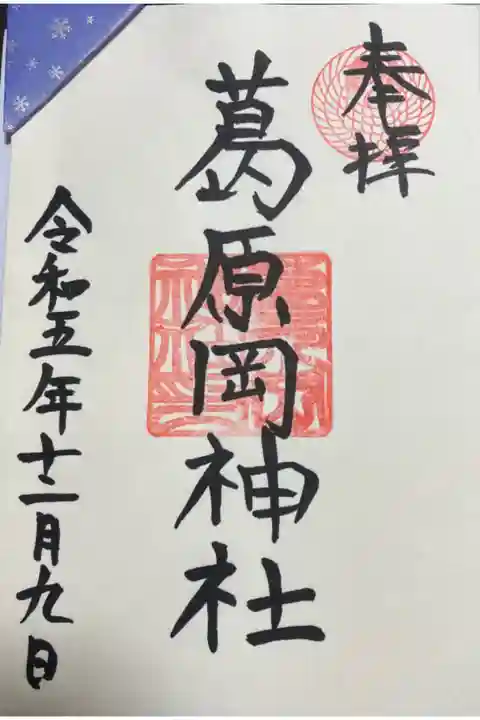 奉拝
葛原岡神社
令和五年十二月九日